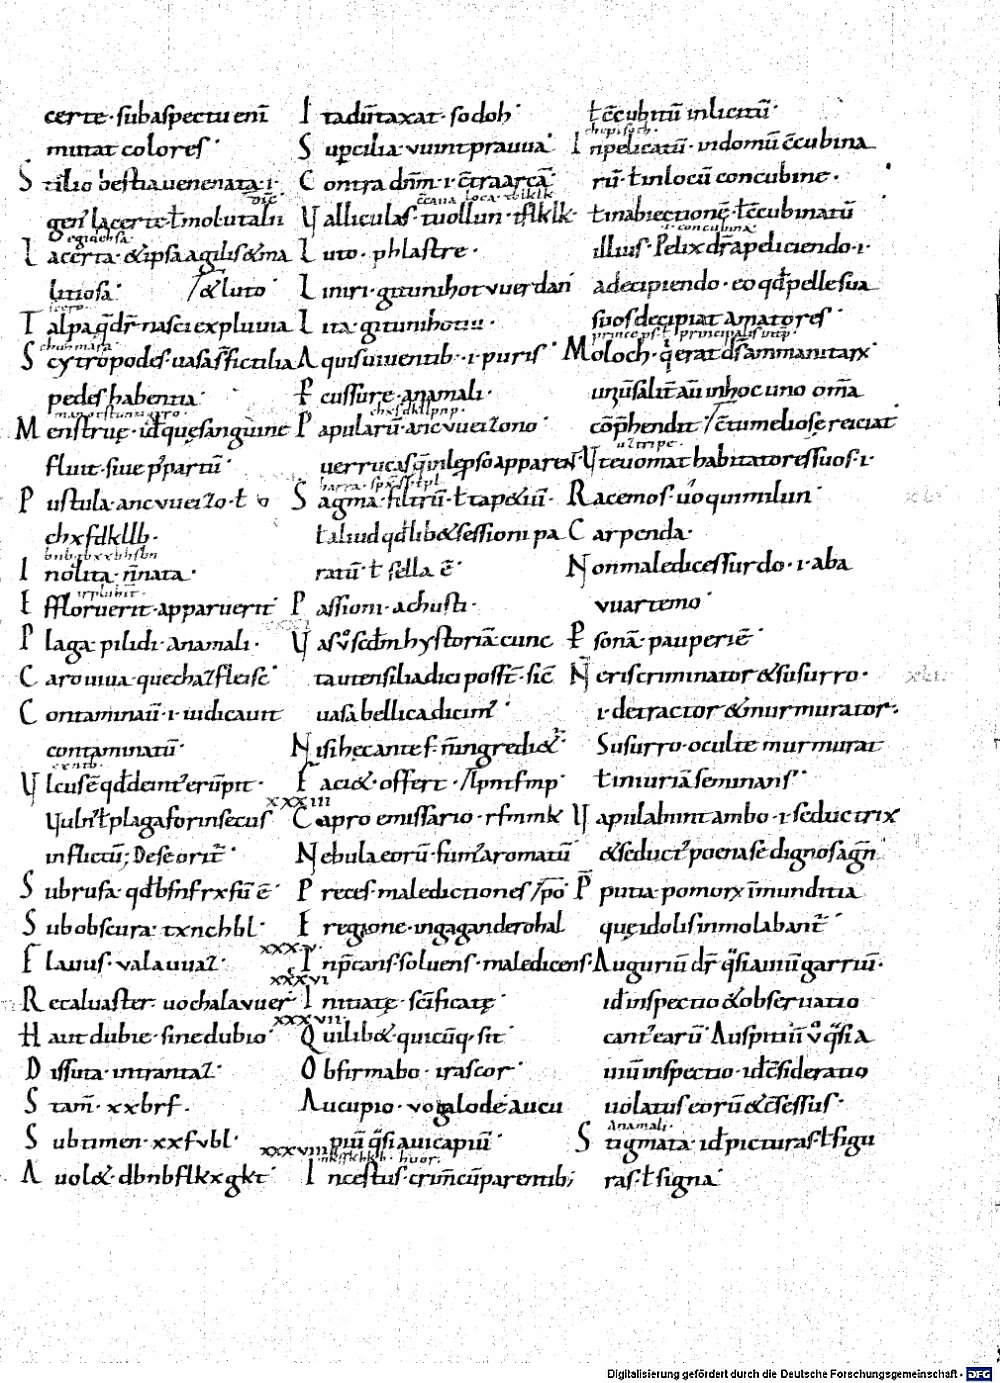 certe · subaspectu eni̅
mutat colores ·
S tilio bestia uenenata · i ·
geri lacerte ƚ molutalin
eginehsa
L acerta · & ipsa agilis & ma
litiosa · / & luto ·
T alpa q̅d̅r̅ nasci ex pluuia
S cytropodes · uasa fictilia
pedes habentia ·
M enstruę · id quę sanguine
fluit · siue p̱ partu̅ ·
P ustula · ancvueizo · ƚ
chxfdkllb ·
I nolita · n̅ nata ·
E ffloruerit · apparuerit
P laga · pilidi · anamali ·
C aro uiua · quechaz fleisc
C ontaminau̅ · i · iudicauit
contaminatu̅ ·
V lcus e̅ qd̅ de intꝰ eru̅pit ·
Vulnꝰ ƚ plaga forinsecus
inflictu̅; De se orit̅ ·
S ubrufa · qd̅ bfnfrxfu̅ e̅ ·
S ubobscura · txnchbl ·
F lauus · valauuaz ·
R ecaluaster · uochalavuer
H aut dubie · sine dubio ·
D issuta · intrantaz ·
S tam̅ · xxbrf ·
S ubtimen · xxfvbl ·
A uol& · dbnbflkxgkt ·
I tadu̅taxat · sodoh ·
S up̱cilia · vuintprauua ·
C ontra dn̅m · i · c̅tra arca̅ ·
V alliculas · tuollun · ıflklk ·
L uto · phlastre ·
L iniri · gitunihot vuerdan
L ita · gitunihotiu ·
A quis uiuentib · · i · puris ·
P cussure · anamali ·
chxfdkllpnp ·
P apularu̅ · ancvueizono ·
uerrucas q̅ in lep̱so apparen
S agma · filtru̅ · ƚ tap&iu̅ ·
ƚ aliud qd̅ lib& sessioni pa
ratu̅ · ƚ sella e̅ ·
P assioni · achusti ·
V as v̊ scd̅m hystoria̅ cunc
ta utensilia dici posst̅ · sic̅
uasa bellica dicimꝰ ·
N isi hęc ante f · n̅ ingredi&
F aci& · offert · / lpntfmp ·
xxxiii
C apro emissario · rfmmk
N ebula eoru̅ · fumꝰ aromatu̅
P reces · maledictiones / po̅
E regione · ingaganderohal
xxxv ·
I np̅cans · soluens · maledicens ·
xxxvi
I nitiatę · sc̅ificatę ·
xxxvii ·
Q uilib& · quicu̅q; sit
O bfirmabo · irascor ·
A ucupio · vogalode aucu
piu̅ q̅si auicapiu̅ ·
xxxviii
I ncestus · crim̅ cu̅ parentib;
ƚ c̅cubitu̅ inlicitu̅ ·
chepisoh ·
I npelicatu̅ · in domu̅ c̅cubina
ru̅ · ƚ in locu̅ concubine ·
ƚ in abiectione̅ · ƚ c̅cubinatu̅
· i · concubina ·
illius · Pelix dr̅ a pelliciendo · i ·
a decipiendo · eo qd̅ pelle sua
suos decipiat amatores ·
M oloch · q̅ erat ds̅ ammanitarx
unu̅ salit au̅ in hoc uno om̅a
co̅p̅hendit / c̅tumeliose reiciat
uztripe ·
V t euomat habitatores suos · i ·
R acemos · u̅o quimilun ·
C arpenda ·
N on maledices surdo · i · aba
vuartemo ·
P sona̅ · pauperie̅ ·
N eris criminator & susurro ·
· i · detractor & murmurator ·
Susurro · oculte murmurat
ƚ iniuria̅ seminans ·
V apulabunt ambo · i · seductrix
& seductꝰ poena se digno sag̅n
P putia · pomorx i̅munditia
quę idolis inmolabant̅ ·
A uguriu̅ dr̅ q̅si auiu̅ garriu̅ ·
id inspectio & obseruatio
cantꝰ earu̅ · Auspitiu̅ v̊ q̅si a
uiu̅ inspectio · id c̅sideratio
uolatus eoru̅ & c̅sessus ·
Anamali ·
S tigmata · id picturas · ƚ figu
ras · ƚ signa ·
Digitalisierung gefördert durch die Deutsche Forschungsgemeinschaft - DFG